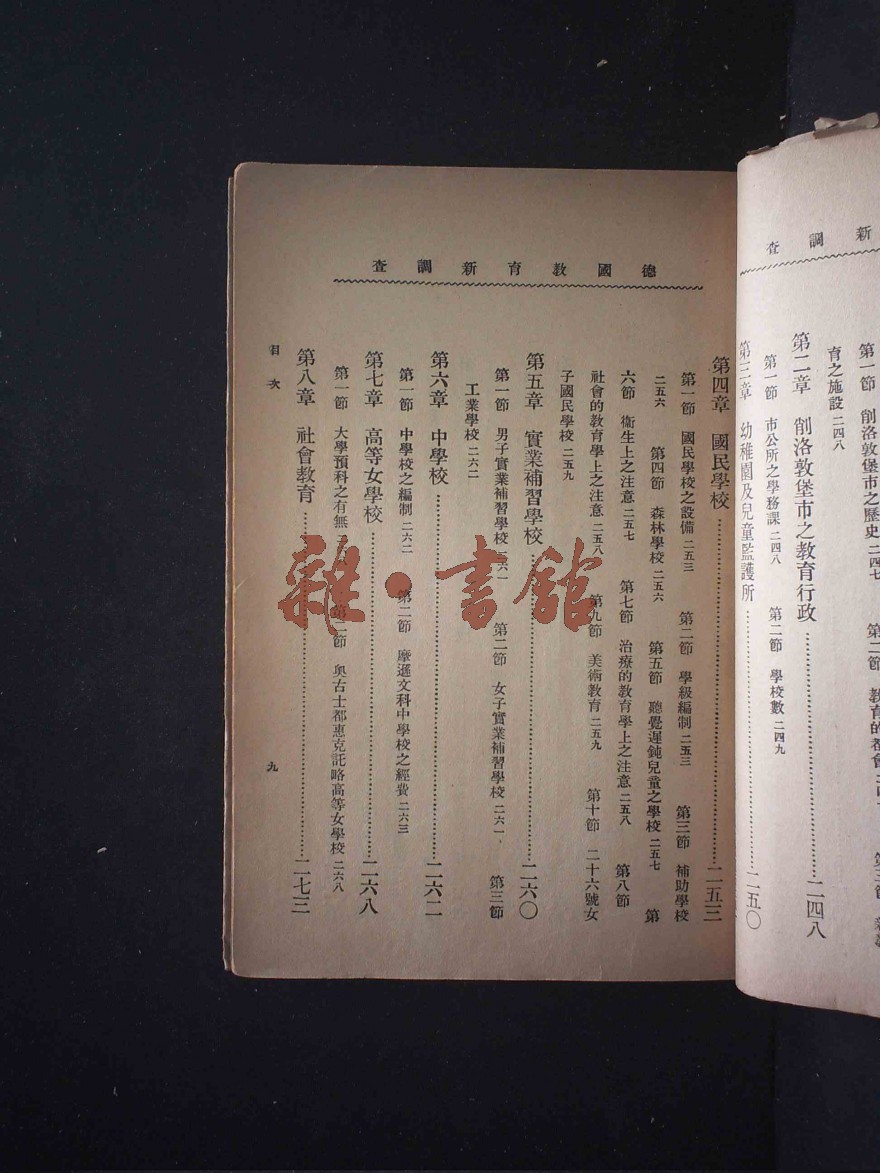 新調查
第一節　削洛敦堡市之歷史二四七　第二節　教育的都會
育之施設二四八
第二章　削洛敦堡市之教育行政……二四八
第一節　市公所之學務課二四八　第二節　學校數二四九
第三章　幼稚園及兒童監護所……二五〇
德國教育新調查
第四章　國民學校……二五三
第一節　國民學校之設備二五三　第二節　學級編制二五三　第三節　補助學校
二五六　第四節　森林學校二五六　第五節　聽覺遲鈍兒童之學校二五七　第
六節　衛生上之注意二五七　第七節　治療的教育學上之注意二五八　第八節
社會的教育學上之注意二五八　第九節　美術教育二五九　第十節　二十六號女
子國民學校二五九
第五章　實業補習學校……二六〇
第一節　男子實業補習學校二六一　第二節　女子實業補習學校二六一　第三節
工業學校二六二
第六章　中學校……二六二
第一節　中學校之編制二六二　第二節　摩遜文科中學校之經費二六三
第七章　高等女學校……二六八
第一節　大學預科之有無　第二節　奧古士都惠克託略高等女學校二六八
第八章　社會教育……二七三
目次
九
雜·書館